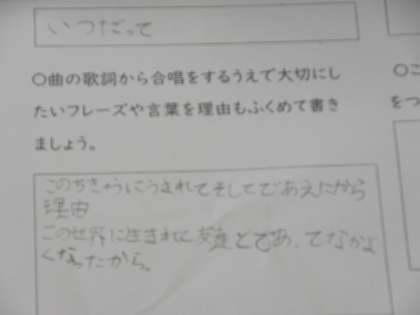 いつだって
○曲の歌詞から合唱をするうえで大切にし
たいフレーズや言葉を理由もふくめて書き
ましょう。
このちきゅうにうまれてそしてであえたから
理由
この世界に生まれて 達とであってなかよ
くなったから。
○こ
をつ